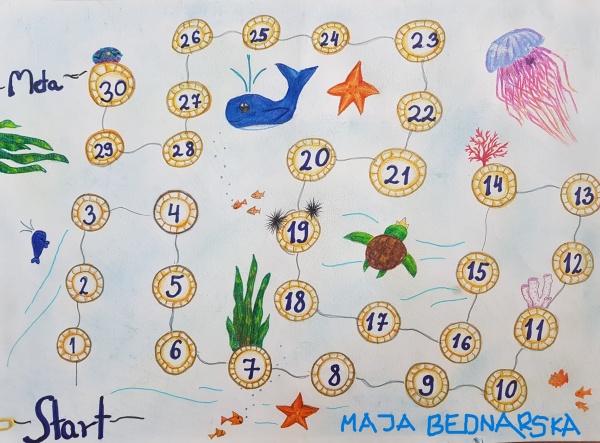 26 25 24 23
Meta 30 27 22
29 28 20 21
14 13
3 4 19
2 5 18 15 12
1 6 17 16 11
7 8 9 10
Start
MAJA BEDNARSKA